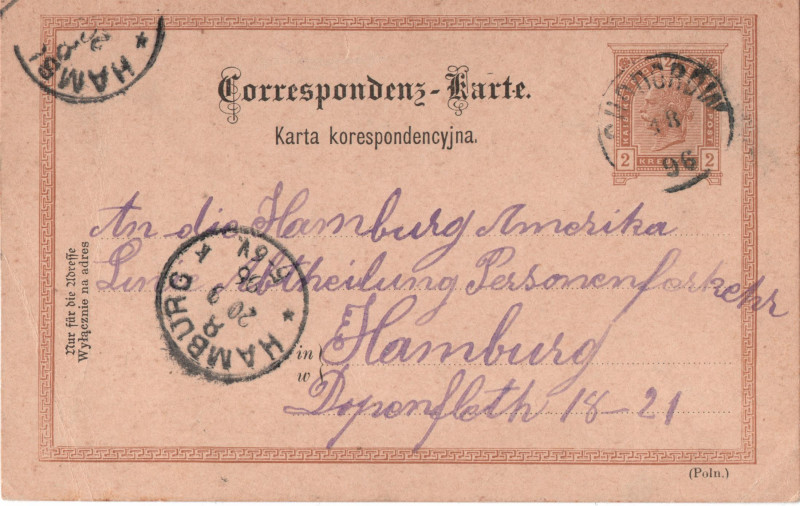 Correspondenz-Karte.
Karta korespondencyjna.
2 KREUZER 2
96
HAMBURG
An die Hamburg Amerika
Linie Abtheilung Personenferkehr
in
w
Hamburg
Dopenfleth 18-21
HAMBURG
Nur für die Adresse
Wyłącznie na adres
(Poln.)